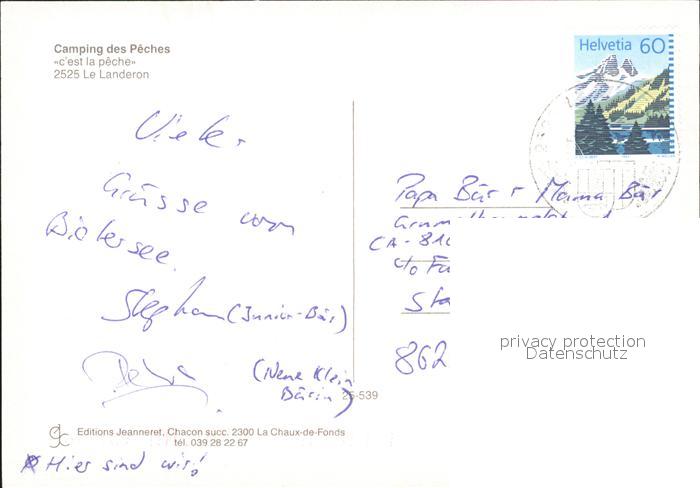 Camping des Pêches
«c'est la pêche»
2525 Le Landeron
Helvetia 60
Viele
Grüsse vom
Bielersee.
Stephan (Junior-Bär)
(Neue Klein
Bärin)
Papa Bär + Mama Bär
CA-810
c/o Fa
Sta
862
privacy protection
Datenschutz
25-539
Editions Jeanneret, Chacon succ. 2300 La Chaux-de-Fonds
tél. 039 28 22 67
Hier sind wir!